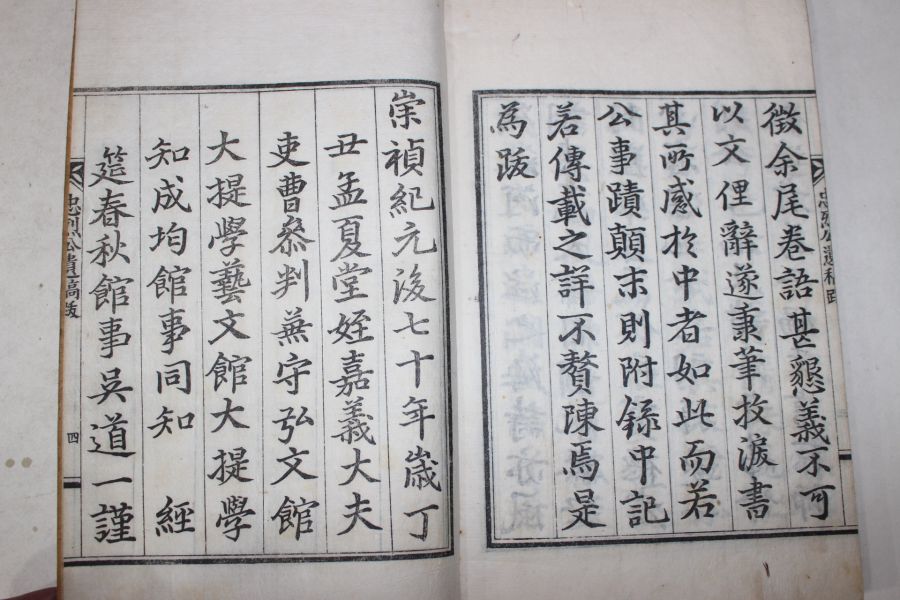 徵余尾卷語甚懇義不可
以文俚辭遂秉筆抆淚書
其所感於中者如此而若
公事蹟顛末則附錄中記
若傳載之詳不贅陳焉是
為跋
崇禎紀元後七十年歲丁
丑孟夏堂姪嘉義大夫
吏曹叅判蒹守弘文館
大提學藝文館大提學
知成均館事同知 經
筵春秋館事吳道一謹
忠烈公遺稿跋
四